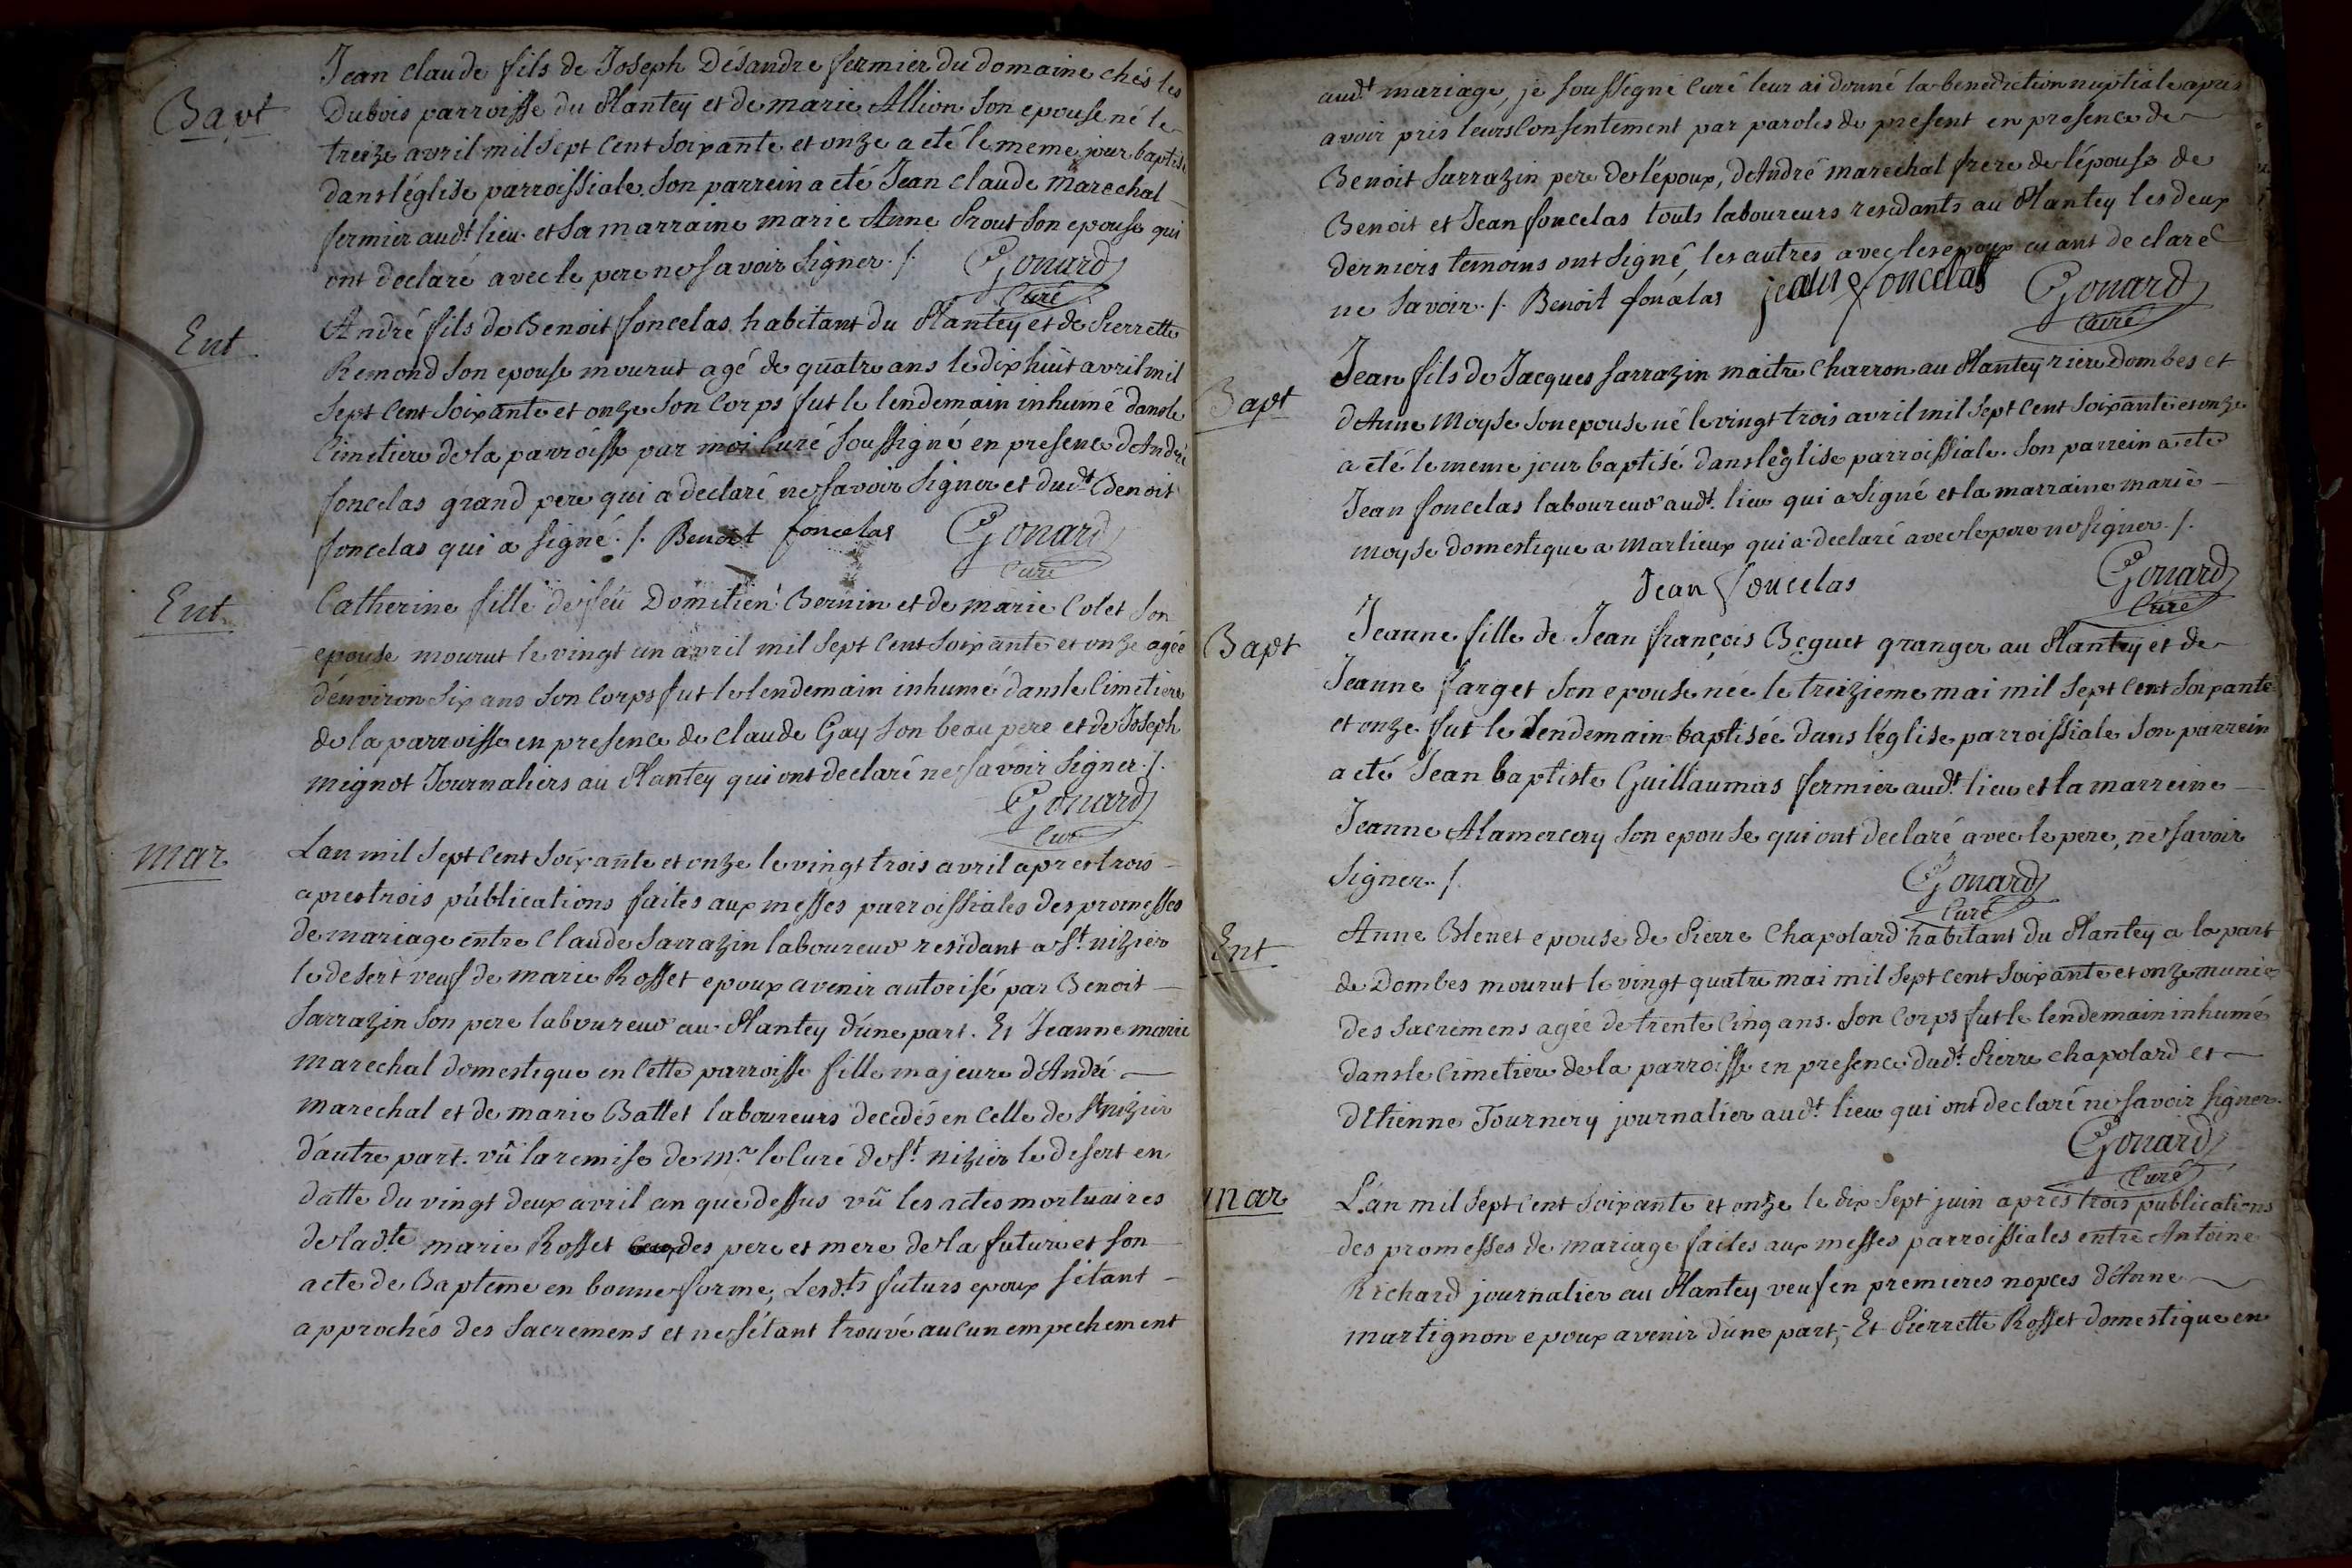 Jean claude fils de Joseph Désandre fermier du domaine chés les
Bapt
Dubois parroisse du Plantey et de marie Allion son epouse né le
treize avril mil sept cent soixante et onze a eté le meme jour baptisé
dans léglise parroissiale. son parrein a eté Jean claude marechal
fermier audt. lieu et sa marraine marie Anne Prout son epouse qui
ont declaré avec le pere ne savoir signer. /. Gouard
Curé
Ent.
André fils de Benoit foncelas habitant du Plantey et de Pierrette
Remond son epouse mourut agé de quatre ans le dix huit avril mil
sept cent soixante et onze son corps fut le lendemain inhumé dans le
cimetiere de la parroisse par moi curé soussigné en presence d'André
foncelas grand pere qui a declaré ne savoir signer et dudt. Benoit
foncelas qui a signé. /. Benoit foncelas Gouard
Curé
Ent.
Catherine fille de feu Domitien Bernin et de marie Colet son
epouse mourut le vingt un avril mil sept cent soixante et onze agée
d'environ six ans son corps fut le lendemain inhumé dans le cimetiere
de la parroisse en presence de claude Gay son beau pere et de Joseph
mignot Journaliers au Plantey qui ont declaré ne savoir signer. /.
Gouard
Curé
Mar
Lan mil sept cent soixante et onze le vingt trois avril apres trois
apres trois publications faites aux messes parroissiales des promesses
de mariage entre Claude Sarrazin laboureur residant a St. nizier
le desert veuf de marie Rosset epoux avenir autorisé par Benoit
Sarrazin son pere laboureur au Plantey d'une part. Et Jeanne marie
marechal domestique en cette parroisse fille majeure d'André
marechal et de marie Battet laboureurs decedés en celle de St nizier
d'autre part. vû la remise de mr. le Curé de St. nizier le desert en
datte du vingt deux avril an que dessus vû les actes mortuaires
de ladte. marie Rosset des pere et mere de la future et son
acte de Bapteme en bonne forme, Lesdts. futurs epoux sétant
approchés des Sacremens et ne sétant trouvé aucun empechement
audt. mariage, je soussigné Curé leur ai donné la benediction nuptiale apres
avoir pris leurs consentement par paroles de present en presence de
Benoit Sarrazin pere de l'époux, d'André marechal frere de l'épouse de
Benoit et Jean foncelas touts laboureurs residants au Plantey les deux
derniers temoins ont signé les autres avec les epoux aiant declaré
ne savoir. /. Benoit foncelas jean foncelas Gouard
Curé
Bapt
Jean fils de Jacques Sarrazin maitre Charron au Plantey riere Dombes et
d'Anne Moyse son epouse né le vingt trois avril mil sept cent soixante et onze
a eté le meme jour baptisé dans leglise parroissiale. son parrein a eté
Jean foncelas laboureur audt. lieu qui a signé et la marraine marie
moyse domestique a Marlieux qui a declaré avec le pere ne signer. /.
Jean foncelas Gouard
Curé
Bapt
Jeanne fille de Jean françois Beguet granger au Plantey et de
Jeanne farget son epouse née le treizieme mai mil sept cent soixante
et onze fut le lendemain baptisée dans léglise parroissiale son parrein
a eté Jean baptiste Guillaumas fermier audt. lieu et la marreine
Jeanne Alamercery son epouse qui ont declaré avec le pere, ne savoir
signer. /. Gouard
Curé
Ent.
Anne Blenet epouse de Pierre Chapolard habitant du Plantey a la part
de Dombes mourut le vingt quatre mai mil sept cent soixante et onze munie
des sacremens agée de trente cinq ans. Son corps fut le lendemain inhumé
dans le cimetiere de la parroisse en presence dudt. Pierre chapolard et
d'Etienne Tournery journalier audt. lieu qui ont declaré ne savoir signer.
Gouard
Curé
Mar
L'an mil sept cent soixante et onze le dix sept juin apres trois publications
des promesses de mariage faites aux messes parroissiales entre Antoine
Richard journalier au Plantey veuf en premieres nopces d'Anne
martignon epoux avenir d'une part, Et Pierrette Rosset domestique en